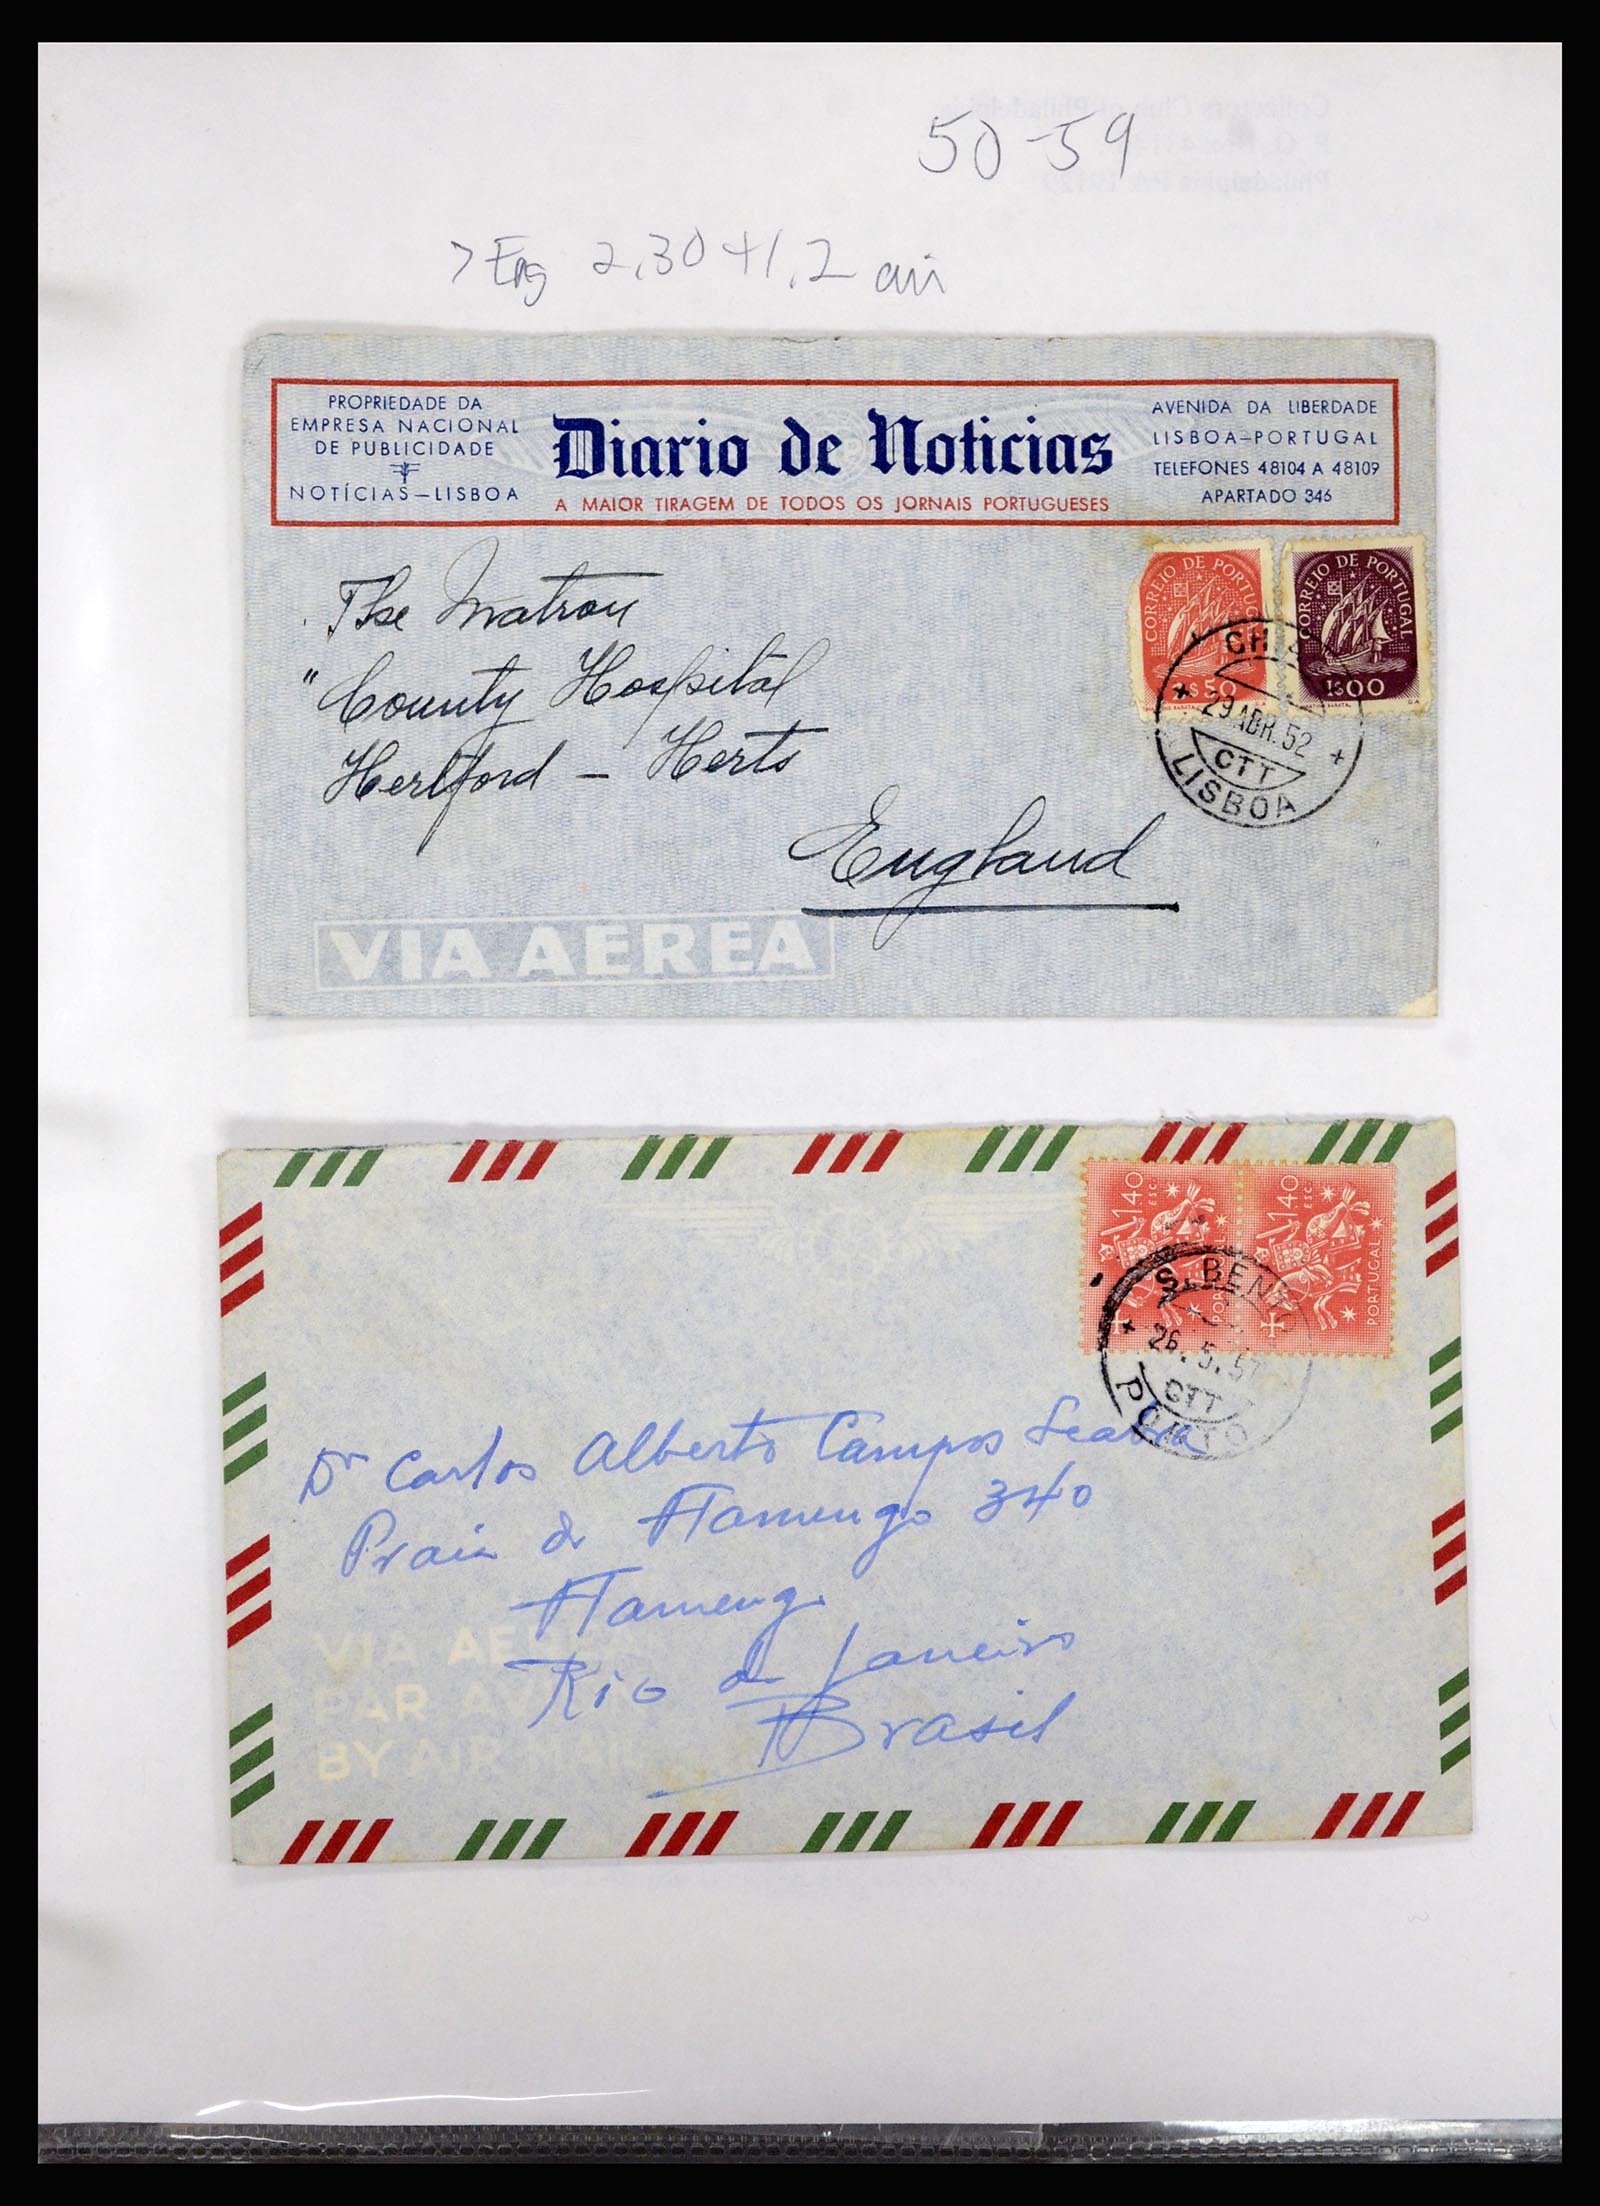 Collectors Club of Philadelphia
Philadelphia PA 19129
50-59
>Eng 2,30+1,2 air
PROPRIEDADE DA
EMPRESA NACIONAL
DE PUBLICIDADE
NOTÍCIAS—LISBOA
Diario de Noticias
A MAIOR TIRAGEM DE TODOS OS JORNAIS PORTUGUESES
AVENIDA DA LIBERDADE
LISBOA—PORTUGAL
TELEFONES 48104 A 48109
APARTADO 346
CORREIO DE PORTUGAL
$50
CORREIO DE PORTUGAL
1$00
29 ABR. 52
CTT
LISBOA
The Matron
"County Hospital
Hertford — Herts
England
VIA AEREA
1.40
ESC.
PORTUGAL
1.40
ESC.
PORTUGAL
S. BENTO
26. 5. 57
CTT
PORTO
Dr Carlos Alberto Campos Seabra
Praia de Flamengo 340
Flamengo
Rio de Janeiro
Brasil
VIA AEREA
PAR AVION
BY AIR MAIL